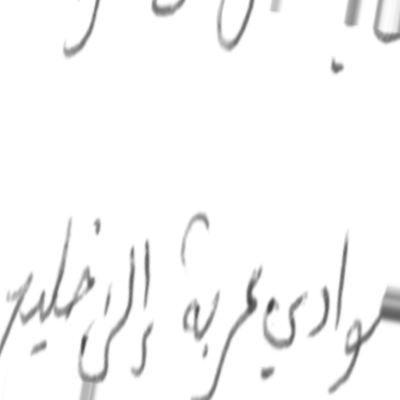 وادي عربة إلى خليج